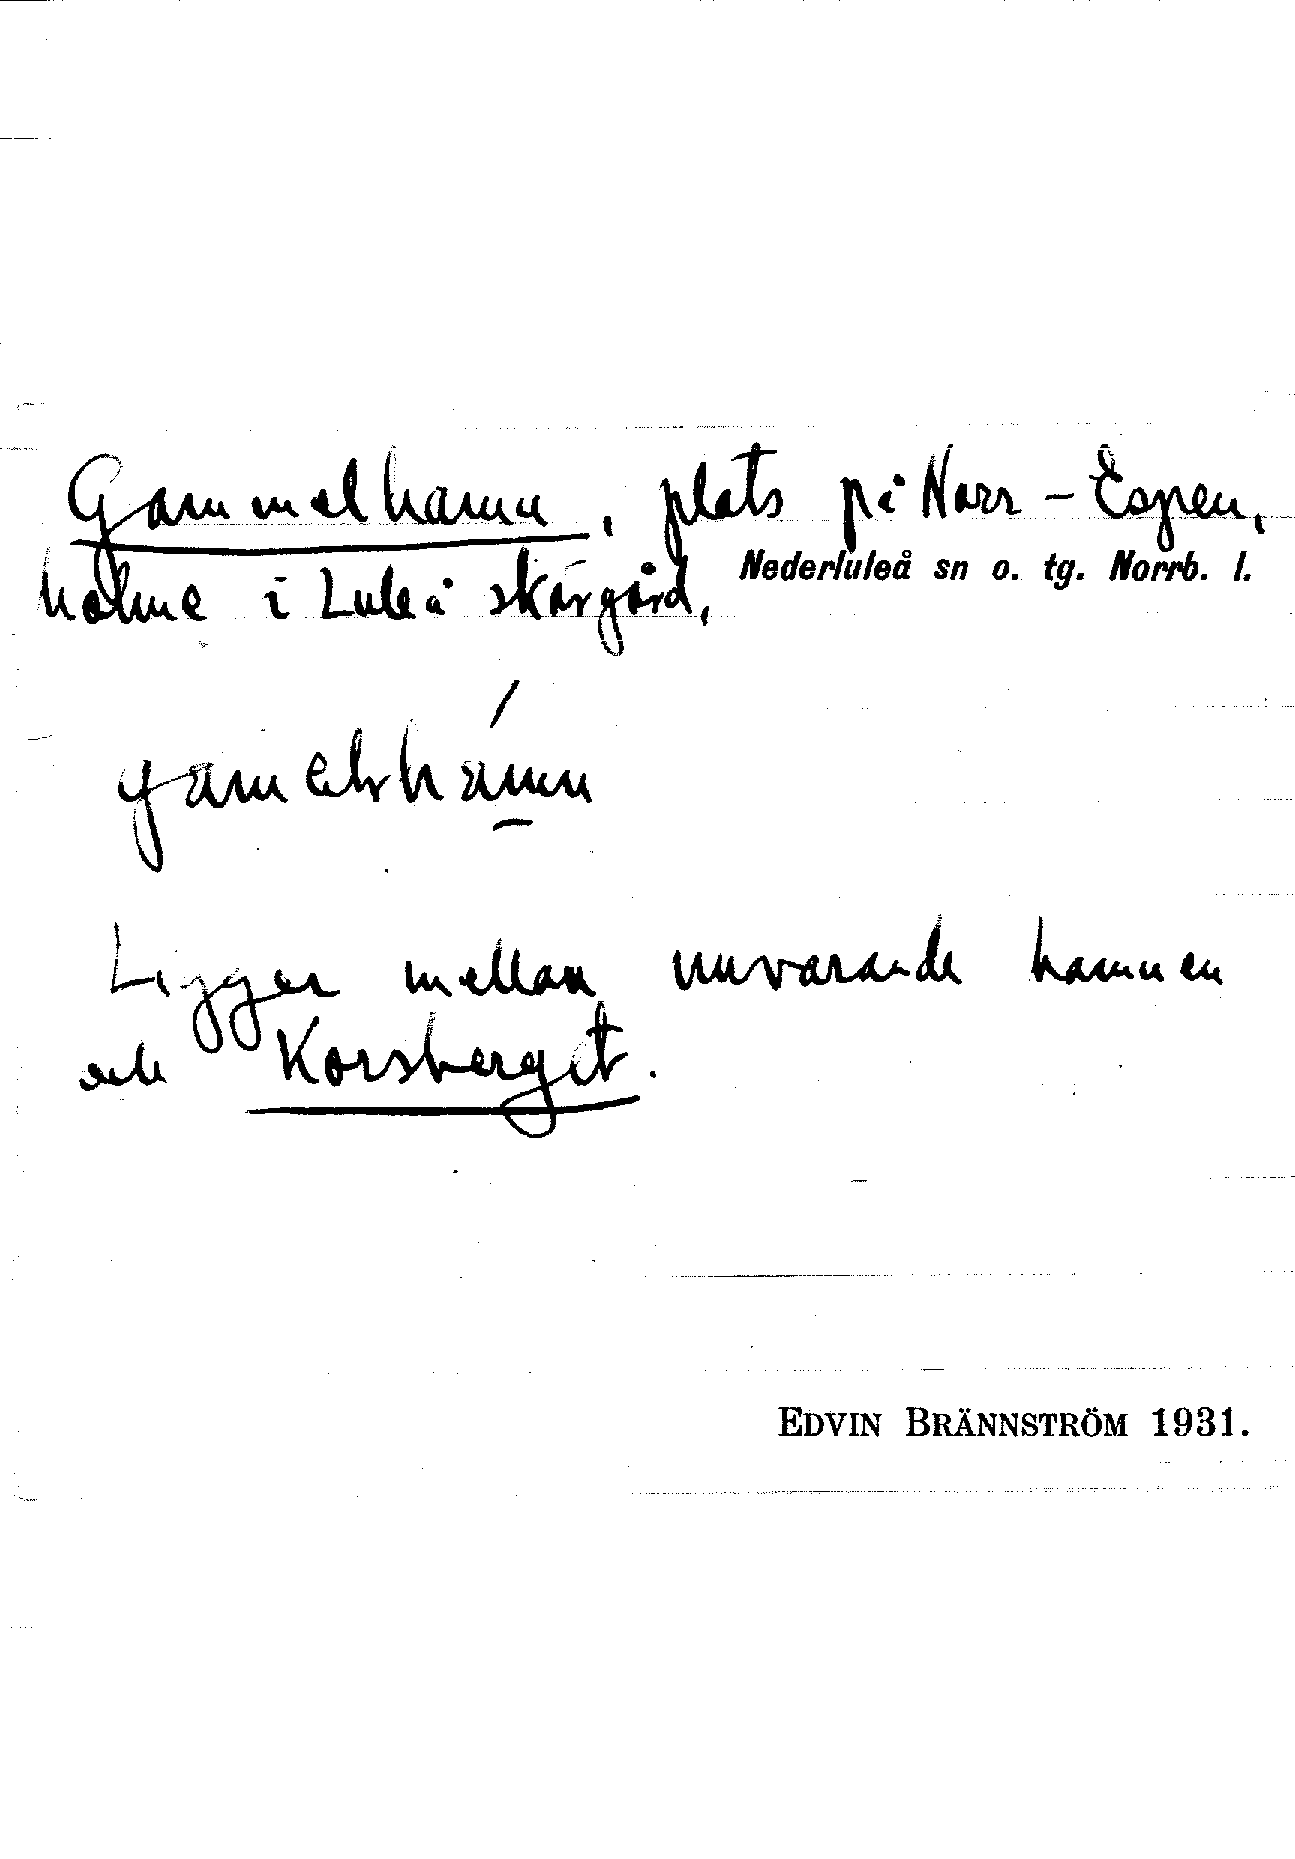 Gammelhamn, plats på Norr-Espen,
Nederluleå sn o. tg. Norrb. l.
holme i Luleå skärgård,
Ligger mellan nuvarande hamnen
och Korsberget.
EDVIN BRÄNNSTRÖM 1931.